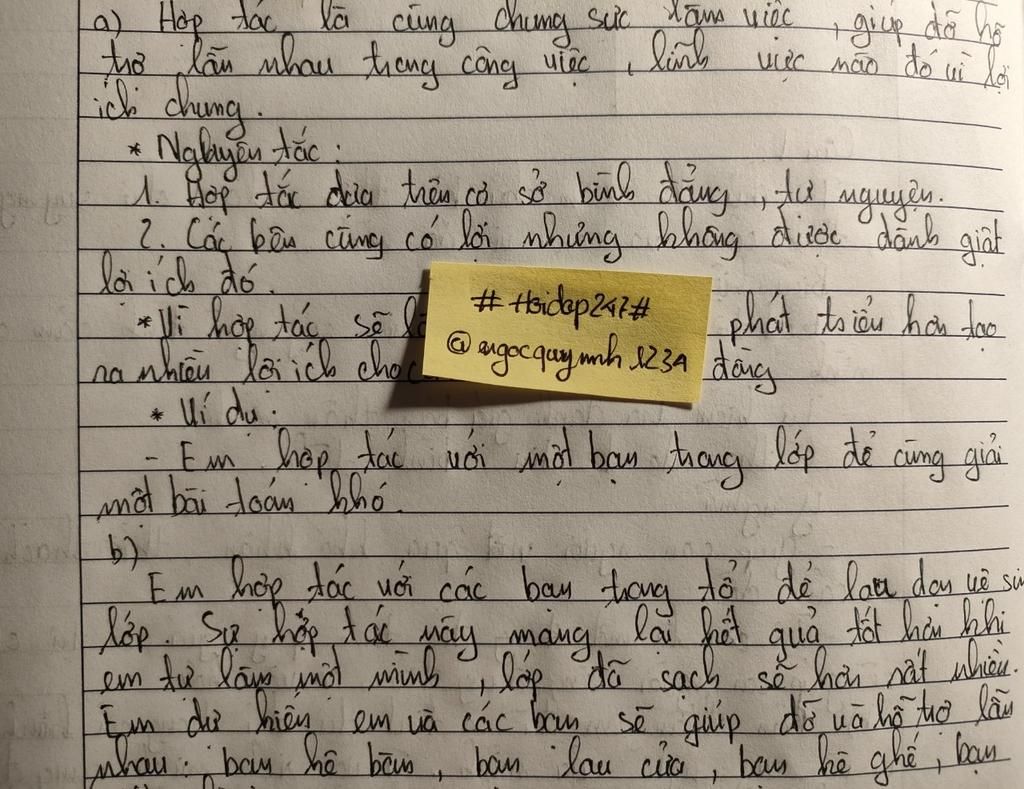 a) Hợp tác là cùng chung sức làm việc, giúp đỡ hỗ
trợ lẫn nhau trong công việc, lĩnh vực nào đó vì lợi
ích chung.
* Nguyên tắc:
1. Hợp tác dựa trên cơ sở bình đẳng, tự nguyện.
2. Các bên cùng có lợi nhưng không được dành giật
lợi ích đó.
* Vì hợp tác sẽ phát triển hơn tạo
ra nhiều lợi ích cho đồng
# Hoidap247#
@ngocquynnh1234
* Ví dụ:
- Em hợp tác với một bạn trong lớp để cùng giải
một bài toán khó.
b)
Em hợp tác với các bạn trong tổ để lau dọn vệ si
lớp. Sự hợp tác này mang lại kết quả tốt hơn khi
em tự làm một mình, lớp đã sạch sẽ hơn rất nhiều.
Em dự kiến em và các bạn sẽ giúp đỡ và hỗ trợ lẫn
nhau: bạn kê bàn, bạn lau cửa, bạn kê ghế, bạn